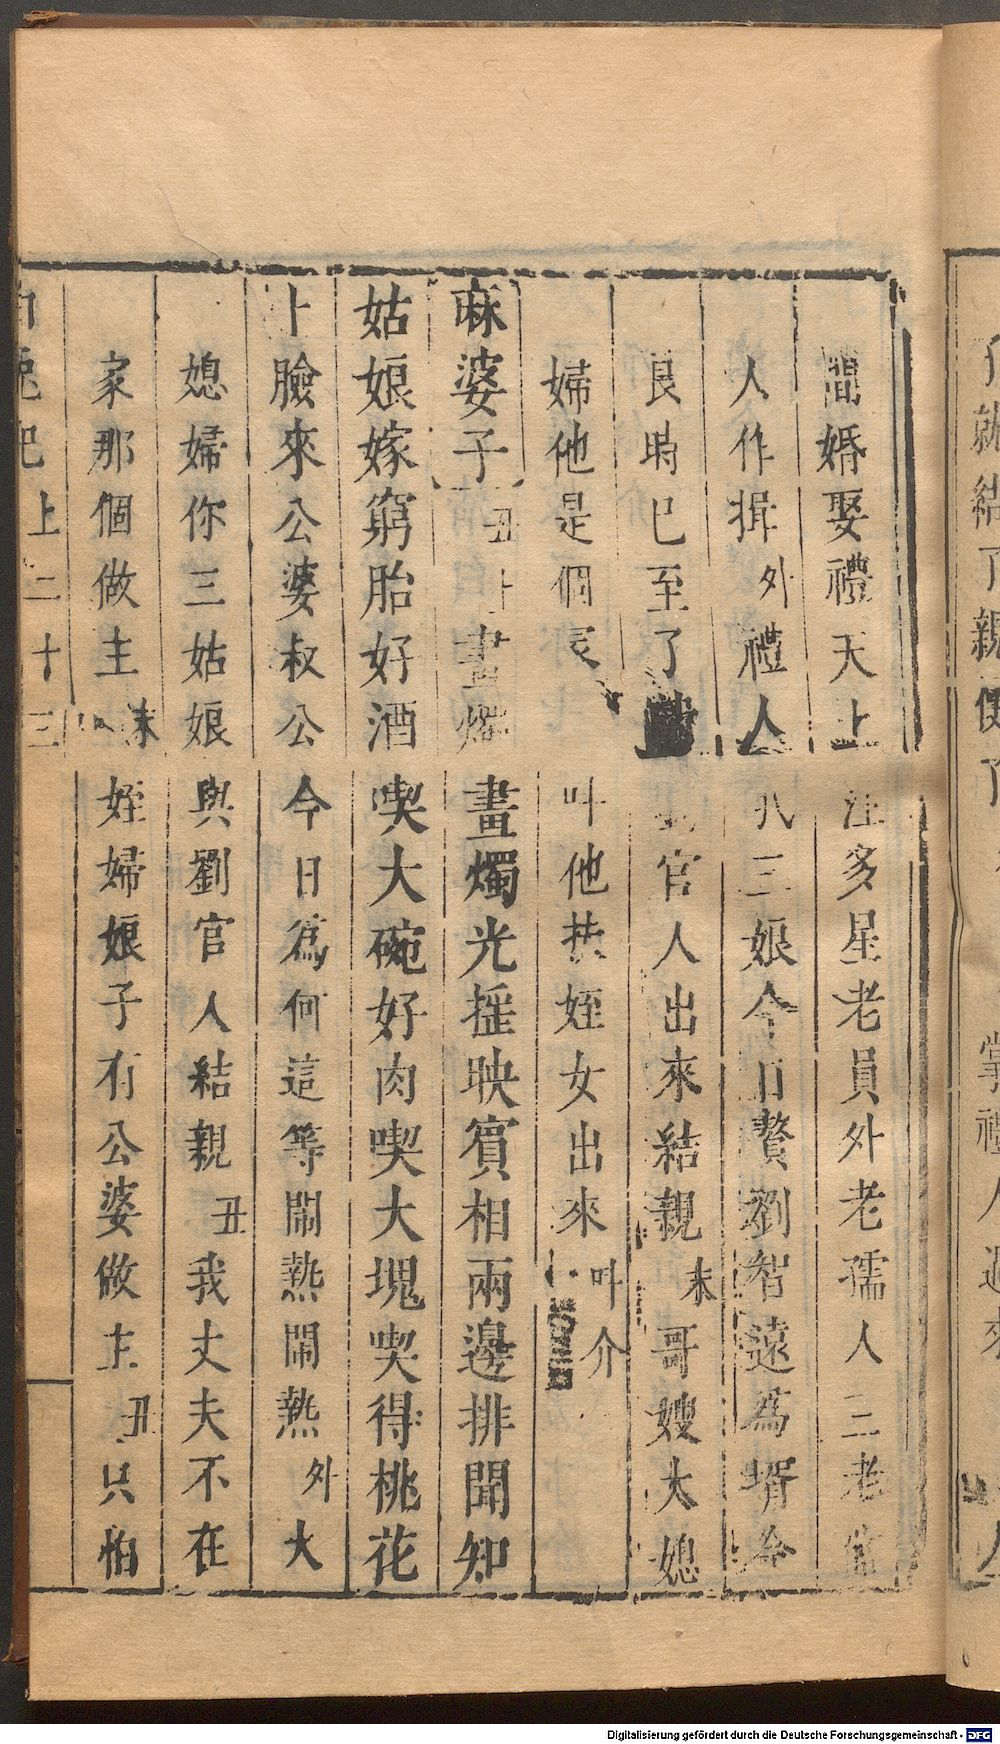 間婚娶禮天上注多星老員外老孺人二老
人作揖外禮人三娘今日贅劉智遠為壻今
良時已至了官人出來結親末哥嫂大媳
婦他是個叫他扶姪女出來叫介
麻婆子丑上畫燭畫燭光揺映賓相兩邊排聞知
姑娘嫁窮胎好酒喫大碗好肉喫大塊喫得桃花
上臉來公婆叔公今日為何這等閙熱閙熱外大
媳婦你三姑娘與劉官人結親丑我丈夫不在
家那個做主末姪婦娘子有公婆做主丑只怕
白兎記上二十三
就結了親
掌禮人過來
Digitalisierung gefördert durch die Deutsche Forschungsgemeinschaft - DFG